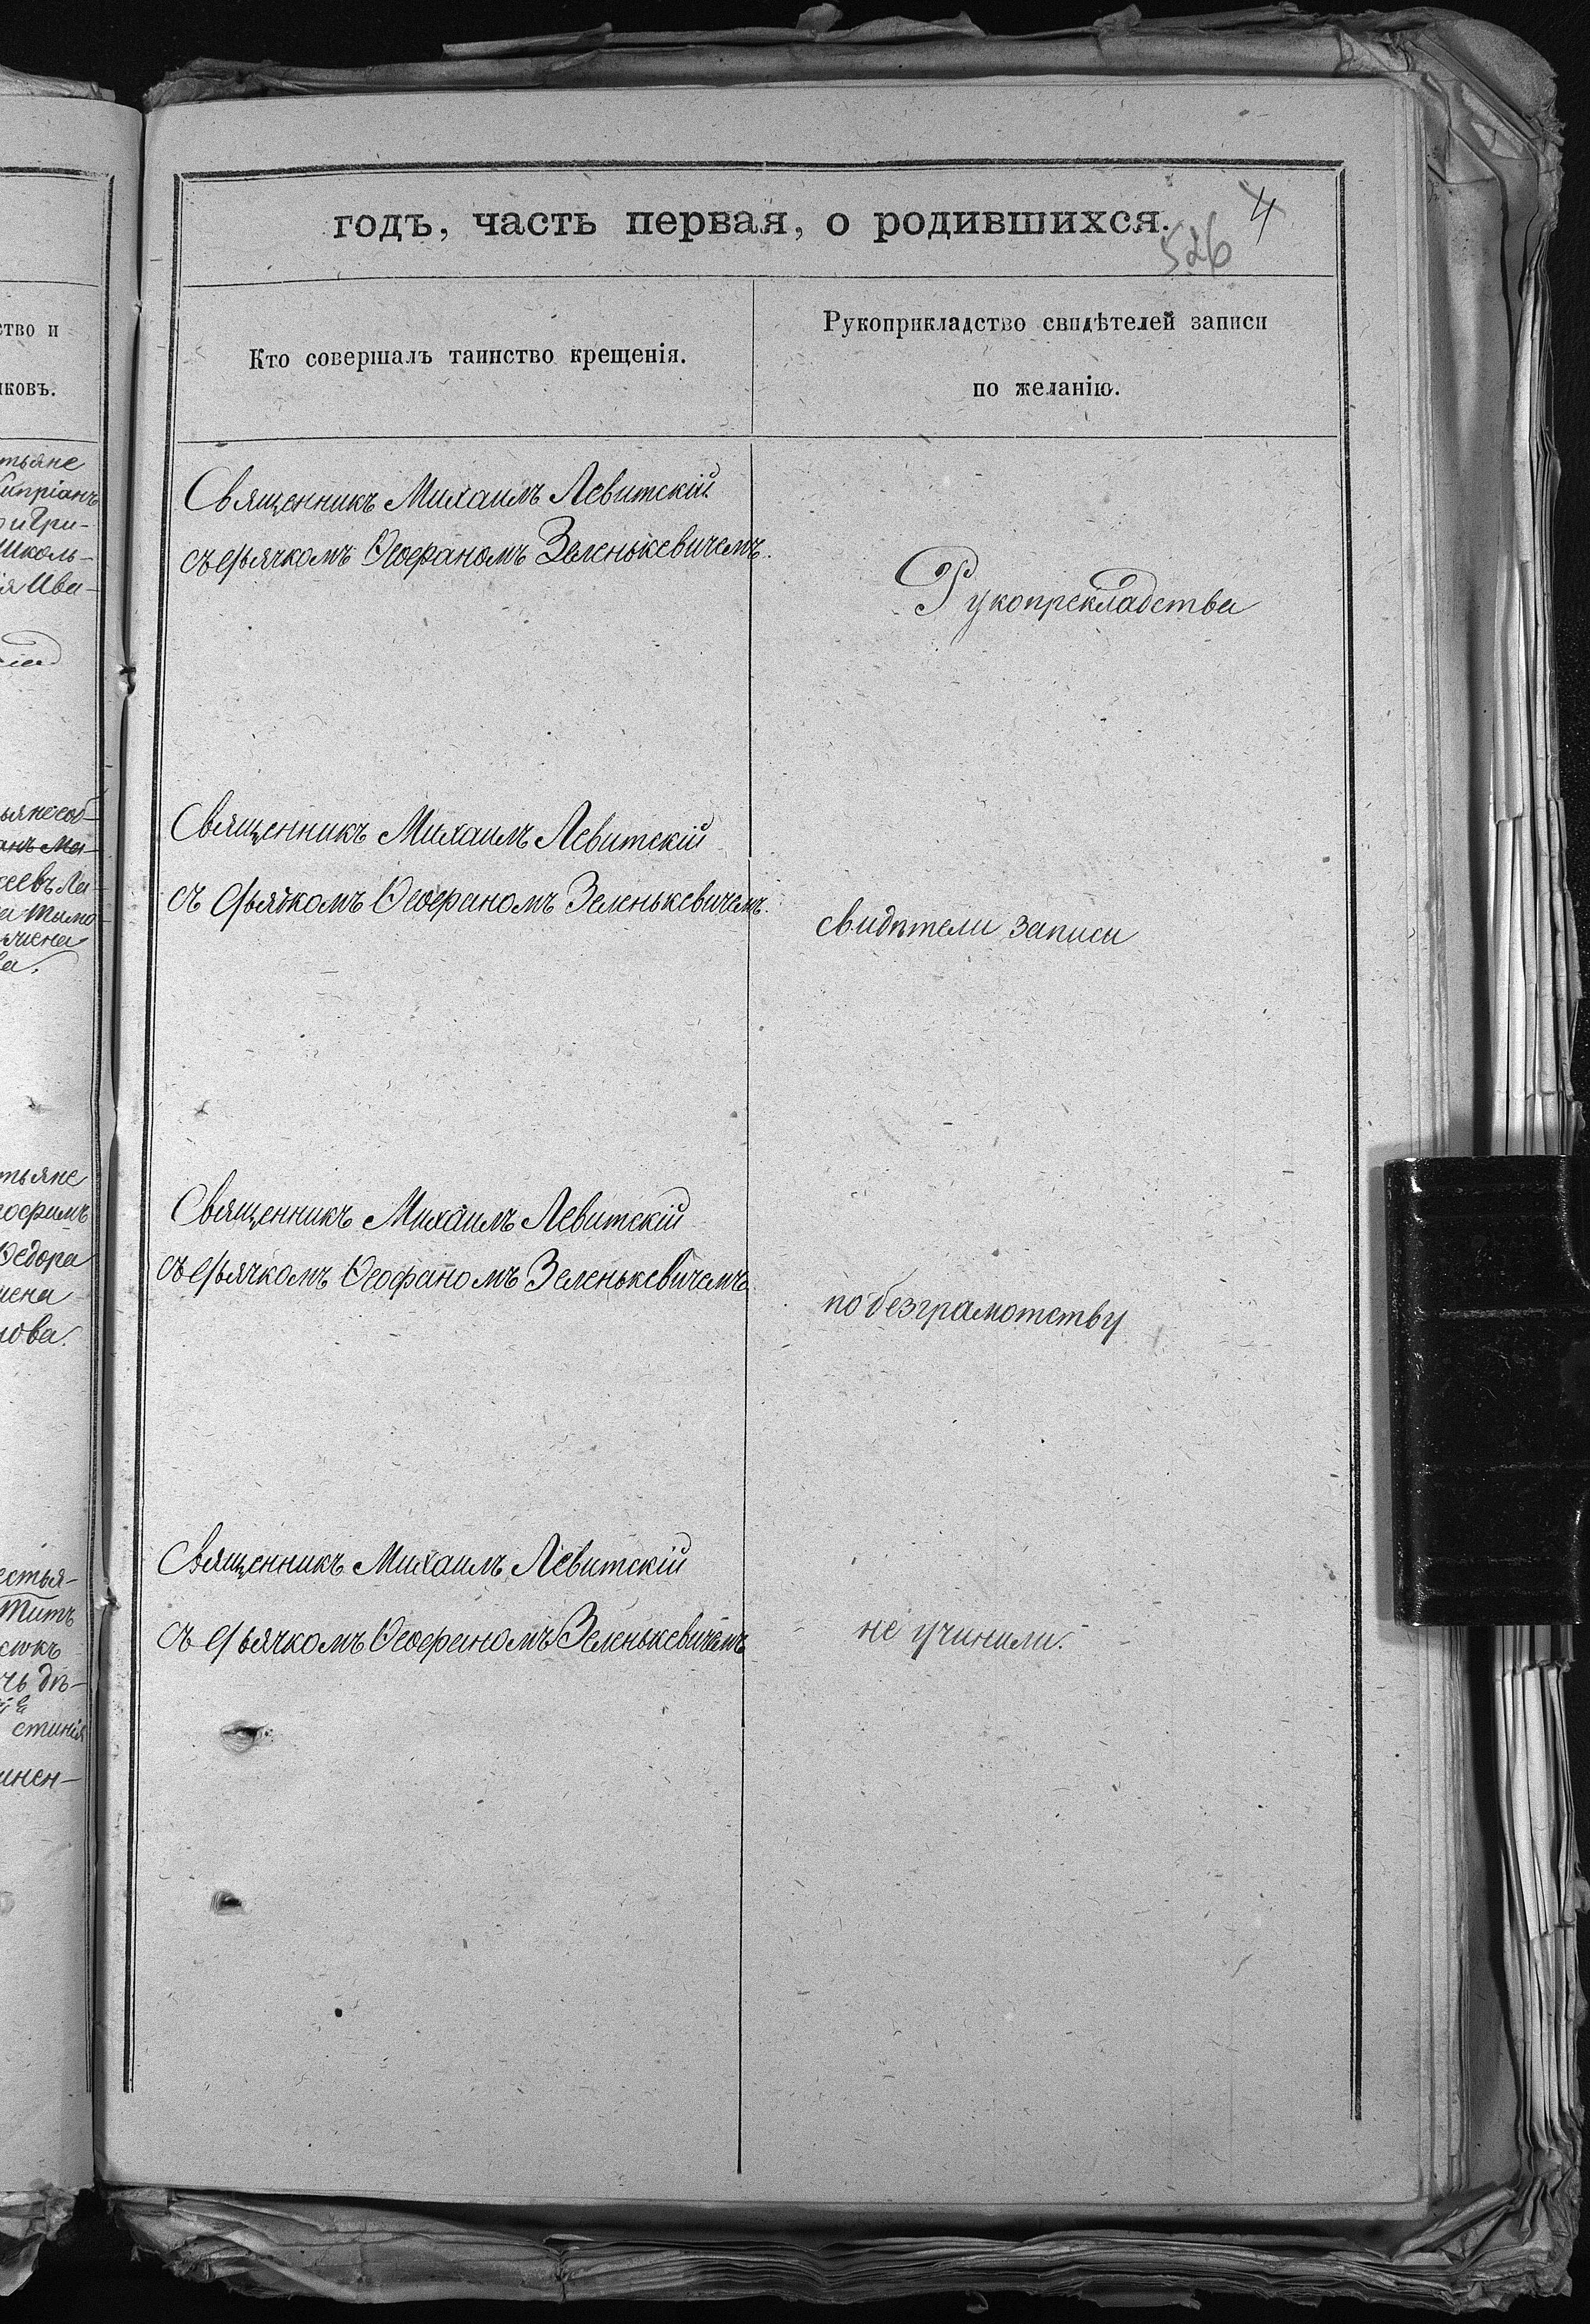 ство и
ковъ.
тьяне
Кипріанъ
и Гри-
Школь-
ія Ива-
тьяне
Ѳедора
нова.
естья-
Титъ
годъ, часть первая, о родившихся.
4
526
Кто совершалъ таинство крещенія.
Рукоприкладство свидѣтелей записи
по желанію.
Священникъ Михаилъ Левитскій
съ дьячкомъ Ѳеофаномъ Зеленькевичемъ.
Рукопрекладства
Священникъ Михаилъ Левитскій
съ дьячкомъ Ѳеофаномъ Зеленькевичемъ.
свидѣтели записи
Священникъ Михаилъ Левитскій
съ дьячкомъ Ѳеофаномъ Зеленькевичемъ
по безграмотству
Священникъ Михаилъ Левитскій
съ дьячкомъ Ѳеофаномъ Зеленькевичемъ
не учинили.